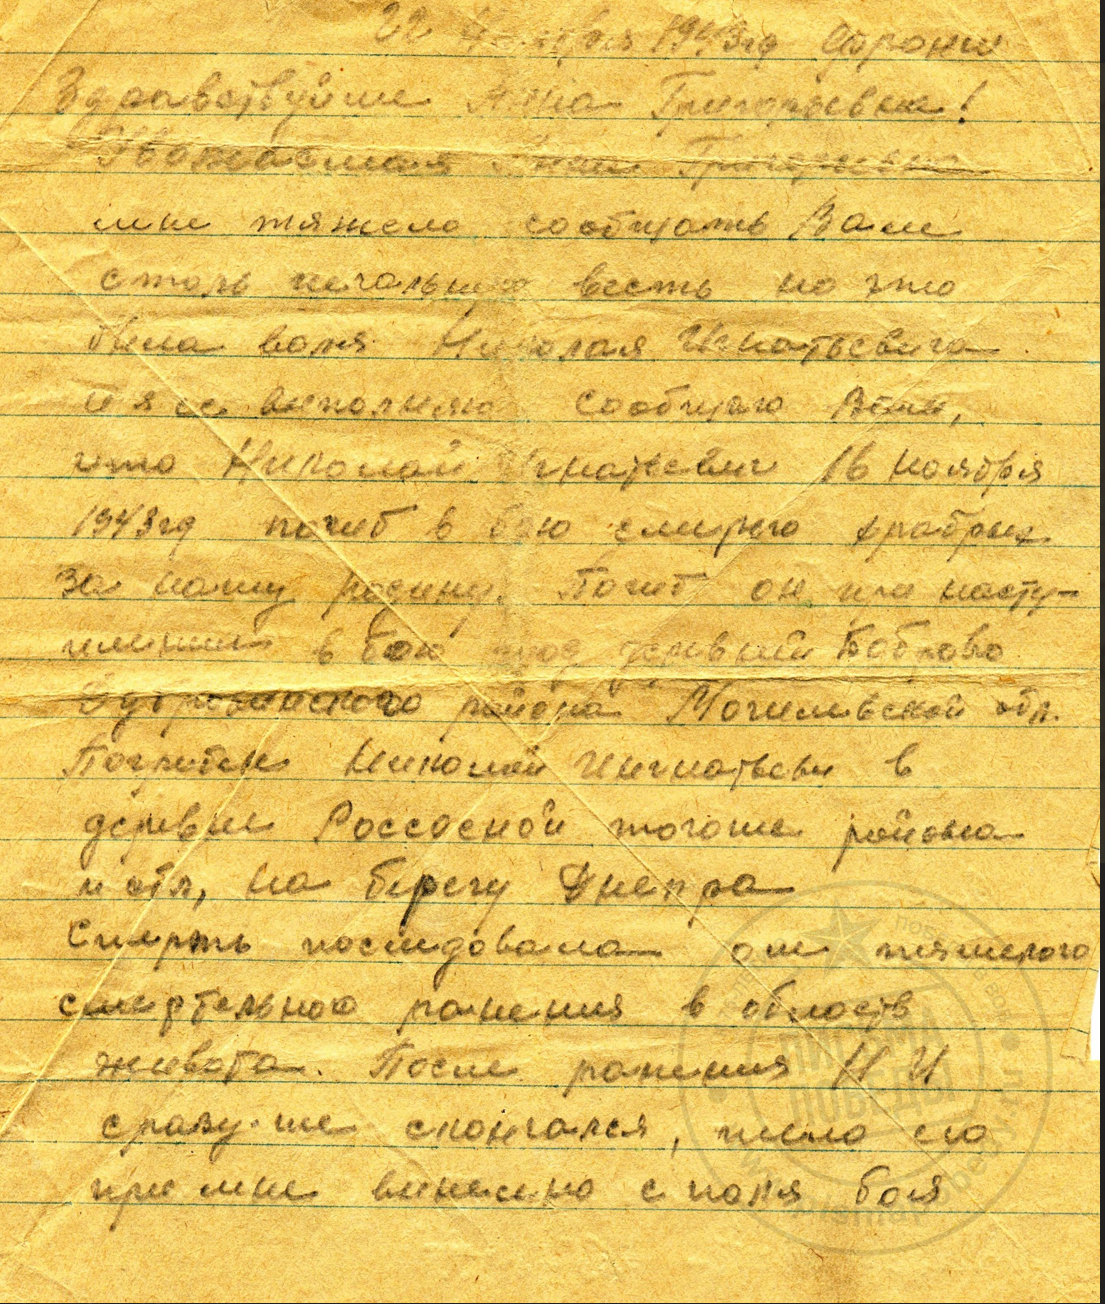 22 Ноября 1943гд Фронт
Здравствуйте Анна Григорьевна!
Уважаемая Анна Григорьевна
мне тяжело сообщать Вам
столь печальную весть но это
была воля Николая Игнатьевича
и я ее выполняю сообщаю Вам,
что Николай Игнатьевич 16 ноября
1943гд погиб в бою смертю храбрых
за нашу родину. Погиб он при насту-
плении в бою под деревней Боброво
района Могилевской обл.
Погребен Николай Игнатьевич в
деревне Россосной тогоже района
и обл, на берегу Днепра
Смерть последовала от тяжелого
смертельного ранения в область
живота. После ранения Н И
сразу-же скончался, тело его
при мне вынесено с поля боя
ПИСЬМА
ПОБЕДЫ